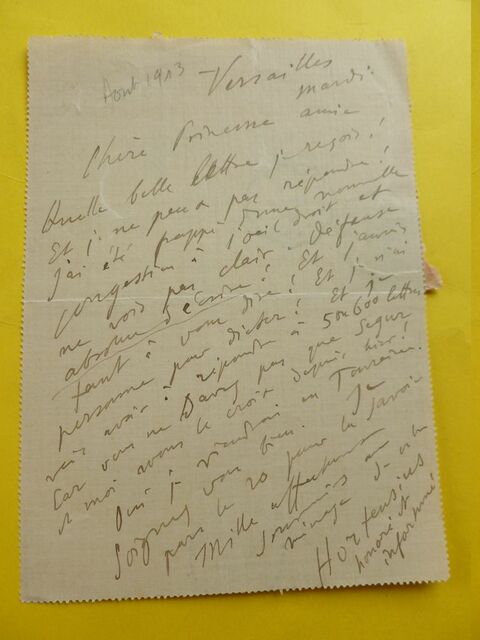 Août 1913
Versailles
mardi.
Chère Princesse amie
Quelle belle lettre je reçois!
Et je ne peux pas répondre!
J'ai été frappé d'une nouvelle
congestion à l'oeil droit et
ne vois pas clair. défense
absolue d'écrire! Et j'aurais
tant à vous dire! Et je n'ai
personne pour dicter! Et je
vais avoir à répondre à 5 ou 600 lettres
car vous ne savez pas que Segur
et moi avons la croix depuis hier!
Oui je viendrai en Touraine.
Soignez vous bien. Je
pars le 20 pour la Savoie
Mille affectueux
souvenirs au
ménage
Hortensius
honoré et
informé